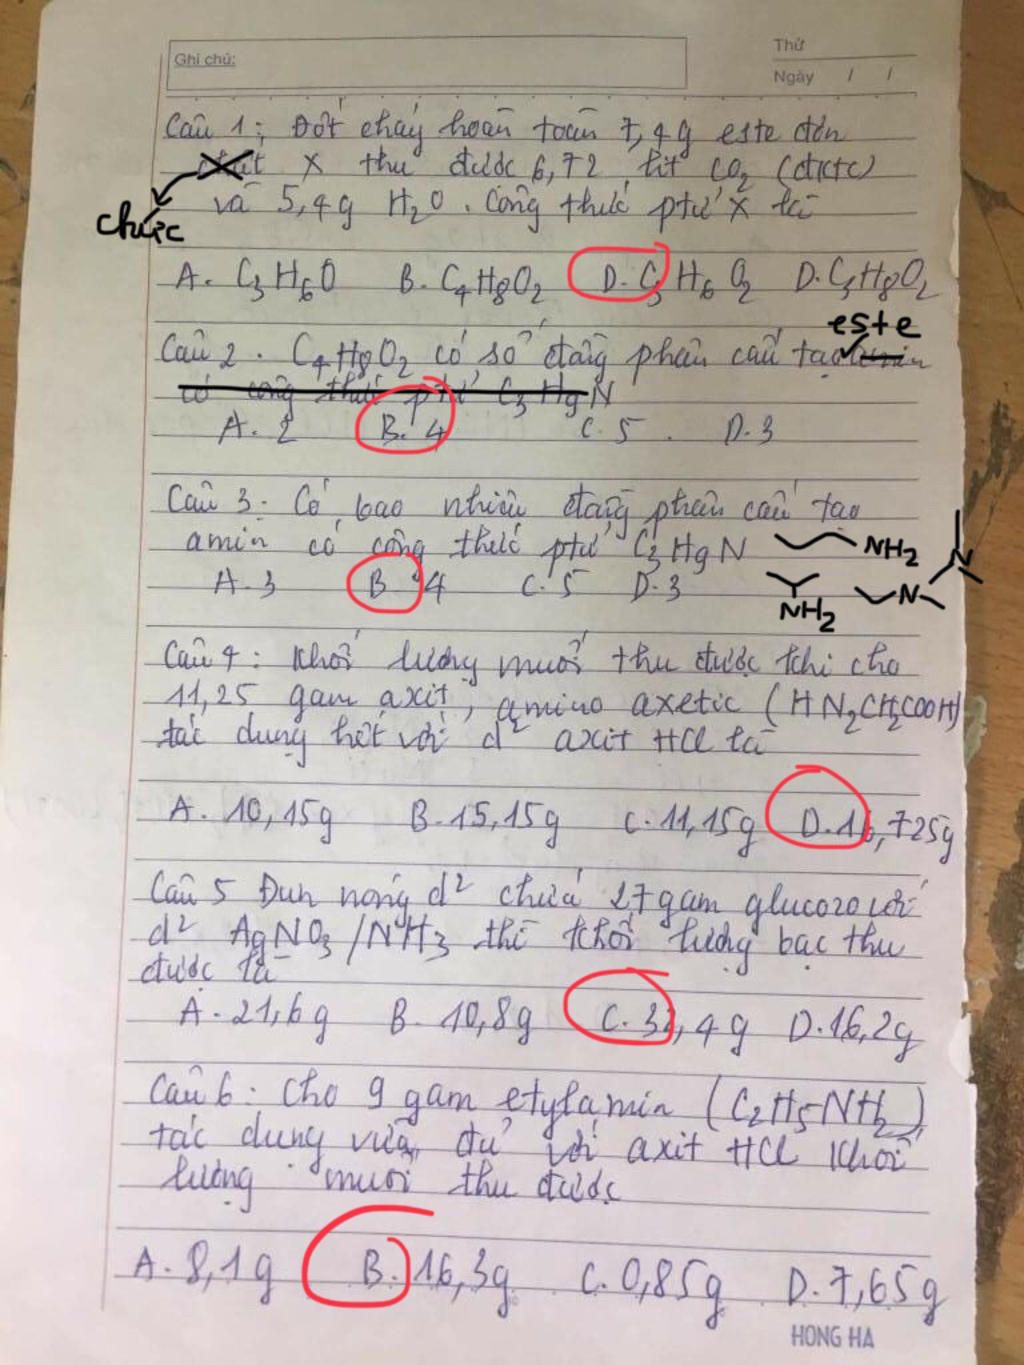 Ghi chú:
Thứ
Ngày / /
Câu 1: Đốt cháy hoàn toàn 7,4g este đơn
chất X thu được 6,72 lít CO2 (đktc)
chức
và 5,4g H2O. Công thức ptử X là
A. C3H6O B. C4H8O2 D. C3H6O2 D. C5H8O2
este
Câu 2. C4H8O2 có số đồng phân cấu tạo amin
có công thức ptử C3H9N
A. 2 B. 4 C. 5. D. 3
Câu 3. Có bao nhiêu đồng phân cấu tạo
amin có công thức ptử C3H9N
NH2
N
A. 3 B 4 C. 5 D. 3
NH2
N
Câu 4: Khối lượng muối thu được khi cho
11,25 gam axit, amino axetic (HN2CH2COOH)
tác dụng hết với d2 axit HCl là
A. 10,15g B. 15,15g C. 11,15g D. 16,725g
Câu 5 Đun nóng d2 chứa 27gam glucozo với
d2 AgNO3/NH3 thì khối lượng bạc thu
được là
A. 21,6g B. 10,8g C. 32,4g D. 16,2g
Câu 6: Cho 9 gam etylamin (C2H5NH2)
tác dụng vừa đủ với axit HCl Khối
lượng muối thu được
A. 8,1g B. 16,3g C. 0,85g D. 7,65g
HONG HA